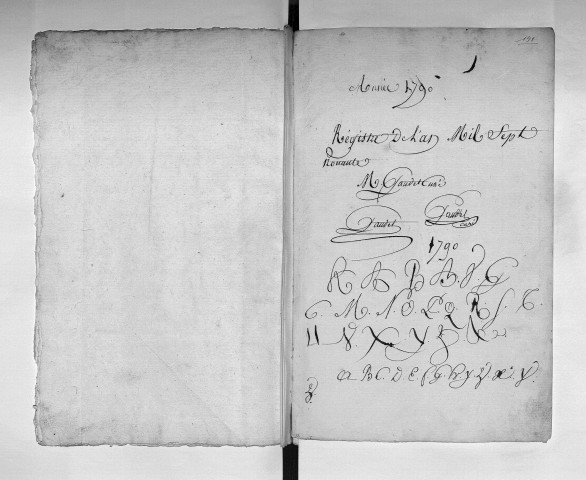 191
Année 1790
Régistre De L'an Mil Sept
Nonante
M. Gaudet Curé
Gaudet Gaudet
curé
1790
R A B A G
G. M. N. O. P. Q. R. S. T.
U V. X. Y Z
a B C. D E f G h y x y.